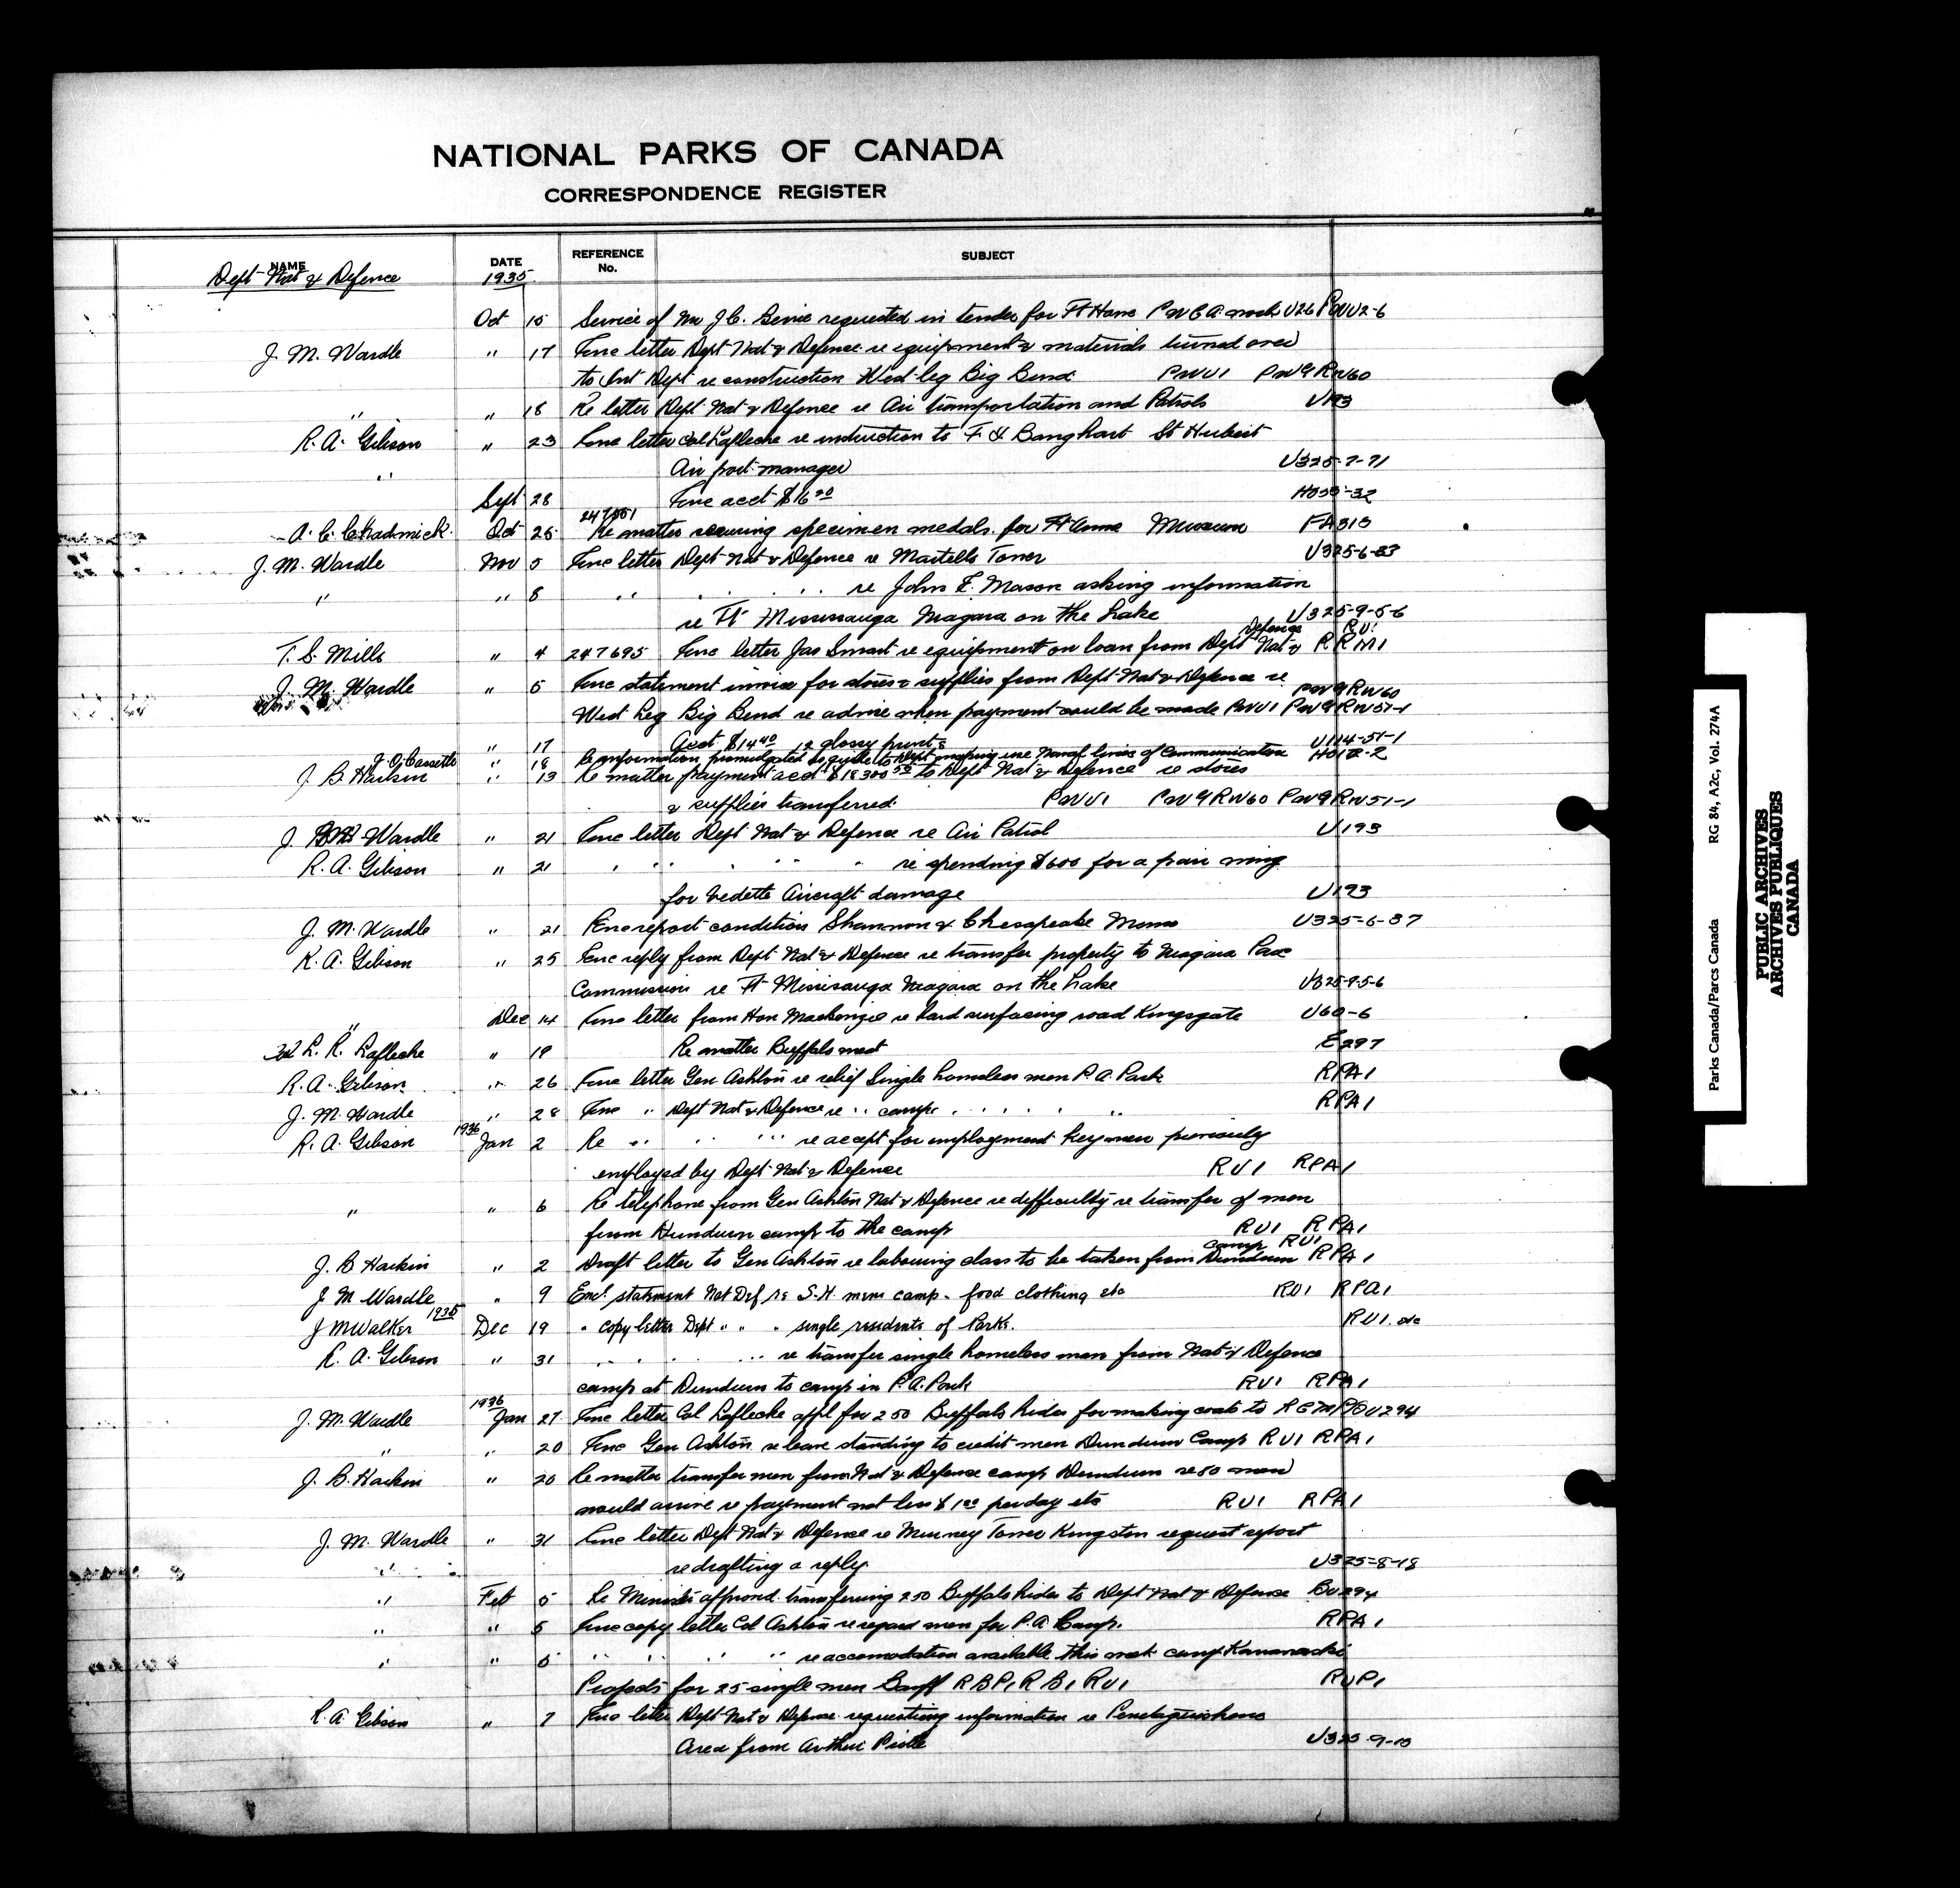 NATIONAL PARKS OF CANADA
CORRESPONDENCE REGISTER
NAME DATE REFERENCE No. SUBJECT
Dept Nat & Defence 1935
Oct 15 Service of Mr J C. requested in tender for Ft Howe U26
J. M. Wardle " 17 Enc letter Dept Nat & Defence re equipment & materials turned over
to Int Dept re construction West leg Big Bend PWU1 PW9RW60
" " 18 Re letter Dept Nat & Defence re Air transportation and Patrols U193
R. A. Gibson " 23 Enc letter Col Lafleche re instruction to F. Banghart St Hubert
" Air port manager U325-7-71
Sept 28 Enc acct $16
A. C. Chadwick Oct 25 Re matter securing specimen medals for Ft Anne Museum FA318
J. M. Wardle Nov 5 Enc letter Dept Nat & Defence re Martello Tower U325-6-33
" " 8 " . . . . re John E. Mason asking information
re Ft Mississauga Niagara on the Lake U325-9-5-6
Defence RU1
T. S. Mills " 4 247695 Enc letter Jas Smart re equipment on loan from Dept Nat & RRM1
J. M. Wardle " 5 Enc statement invoice for stores & supplies from Dept Nat & Defence re PW9RW60
West Leg Big Bend re advise when payment could be made PWU1 PW9RW51-1
" 17 Acct $14.40 12 glossy prints U114-51-1
" 18 Re information promulgated lines of Communication
J. B. Harkin " 13 Re matter payment acct $18300 to Dept Nat & Defence re stores
& supplies transferred PWU1 PW9RW60 PW9RW51-1
J. Wardle " 21 Enc letter Dept Nat & Defence re Air Patrol U193
R. A. Gibson " 21 " " " " " re spending $600 for a pair wing
for Vedette Aircraft damage U193
J. M. Wardle " 21 Enc report condition Shannon & Chesapeake Mems U325-6-37
R. A. Gibson " 25 Enc reply from Dept Nat & Defence re transfer property to Niagara Park
Commission re Ft Missisauga Niagara on the Lake U325-9-5-6
" Dec 14 Enc letter from Hon Mackenzie re hard surfacing road Kingsgate U60-6
L. R. Lafleche " 19 Re matter Buffalo meat E297
R. A. Gibson " 26 Enc letter Gen Ashton re relief Single homeless men P.A. Park RPA1
J. M. Wardle " 28 Enc " Dept Nat & Defence re " camp " " " RPA1
R. A. Gibson 1936 Jan 2 Re " " " re accept for employment keymen previously
employed by Dept Nat & Defence RU1 RPA1
" " 6 Re telephone from Gen Ashton Nat & Defence re difficulty re transfer of men
from Dundurn camp to the camp RU1 RPA1
camp RU1
J. B Harkin " 2 Draft letter to Gen Ashton re labouring class to be taken from Dundurn RPA1
J M Wardle " 9 Encl. statement Nat Def re S.H. mens camp - food clothing etc RU1 RPA1
J M Walker 1935 Dec 19 " copy letter Dept " " " single residents of Parks. RU1. etc
R. A. Gibson " 31 " " " " re transfer single homeless men from Nat & Defence
camp at Dundurn to camp in P.A. Park RU1 RPA1
J. M. Wardle 1936 Jan 27 Enc letter Col Lafleche appl for 250 Buffalo hides for making coats to RCMP BU294
" " 20 Enc Gen Ashton re leave standing to credit men Dundurn Camp RU1 RPA1
J. B. Harkin " 20 Re matter transfer men from Nat & Defence camp Dundurn re 50 men
would arrive re payment not less $1.00 per day etc RU1 RPA1
J. M. Wardle " 31 Enc letter Dept Nat & Defence re Murney Tower Kingston request report
" re drafting a reply U325-8-18
" Feb 5 Re Minister approval transferring 250 Buffalo hides to Dept Nat & Defence BU294
" " 5 Enc copy letter Col Ashton re regard men for P.A. Camp. RPA1
" " 5 " " " " re accomodation available this week camp Kananaskis
Projects for 25 single men Banff RBP1 RB1 RU1 RUP1
R. A Gibson " 7 Enc letter Dept Nat & Defence requesting information re
Area from Arthur U325-9-10
Parks Canada/Parcs Canada RG 84, A2c, Vol. 274A
PUBLIC ARCHIVES
ARCHIVES PUBLIQUES
CANADA